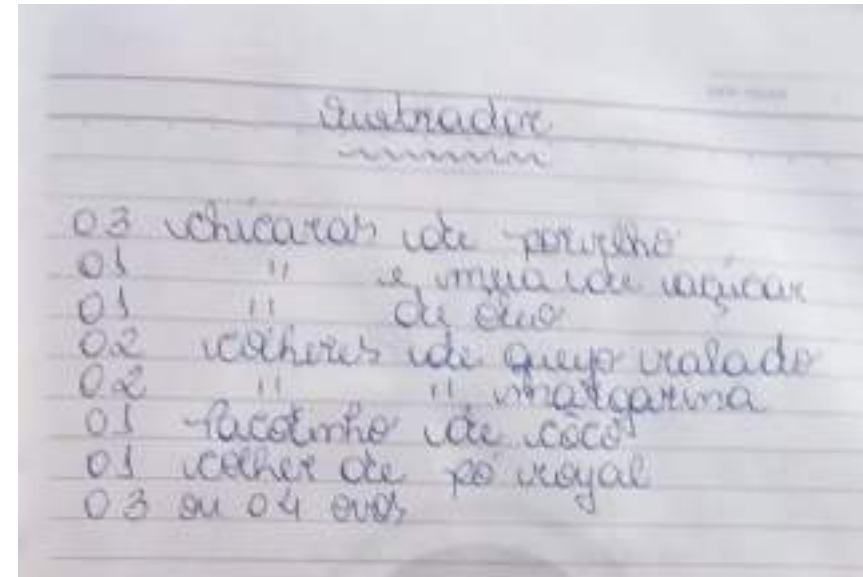 Quebrador
03 chicaras de porvilho
01 " e meia de açúcar
01 " de óleo
02 colheres de queijo ralado
02 " " margarina
01 pacotinho de coco
01 colher de pó royal
03 ou 04 ovos